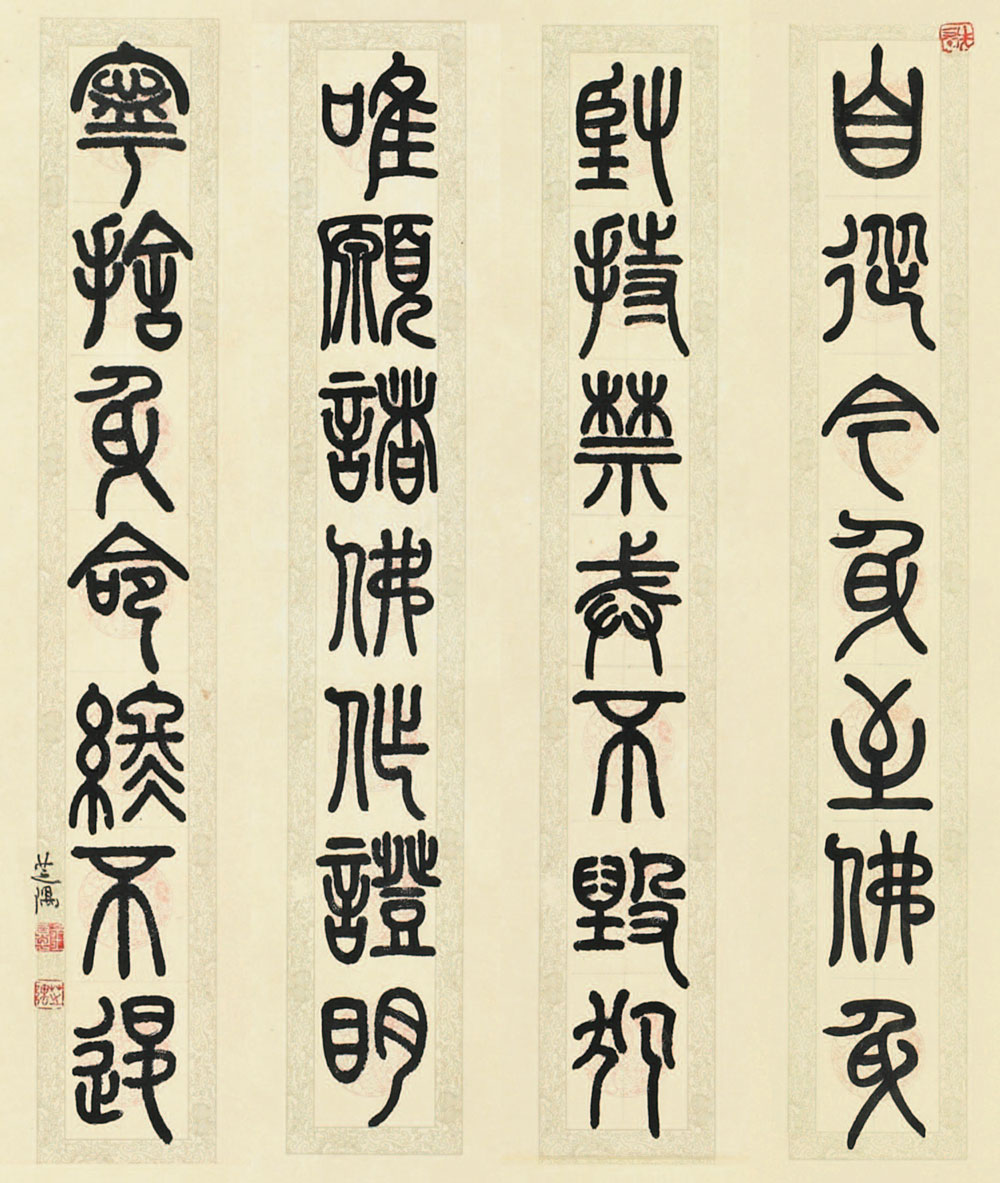 自從今身至佛身
堅持禁戒不毀犯
唯願諸佛作證明
寧捨身命終不退
芝陽